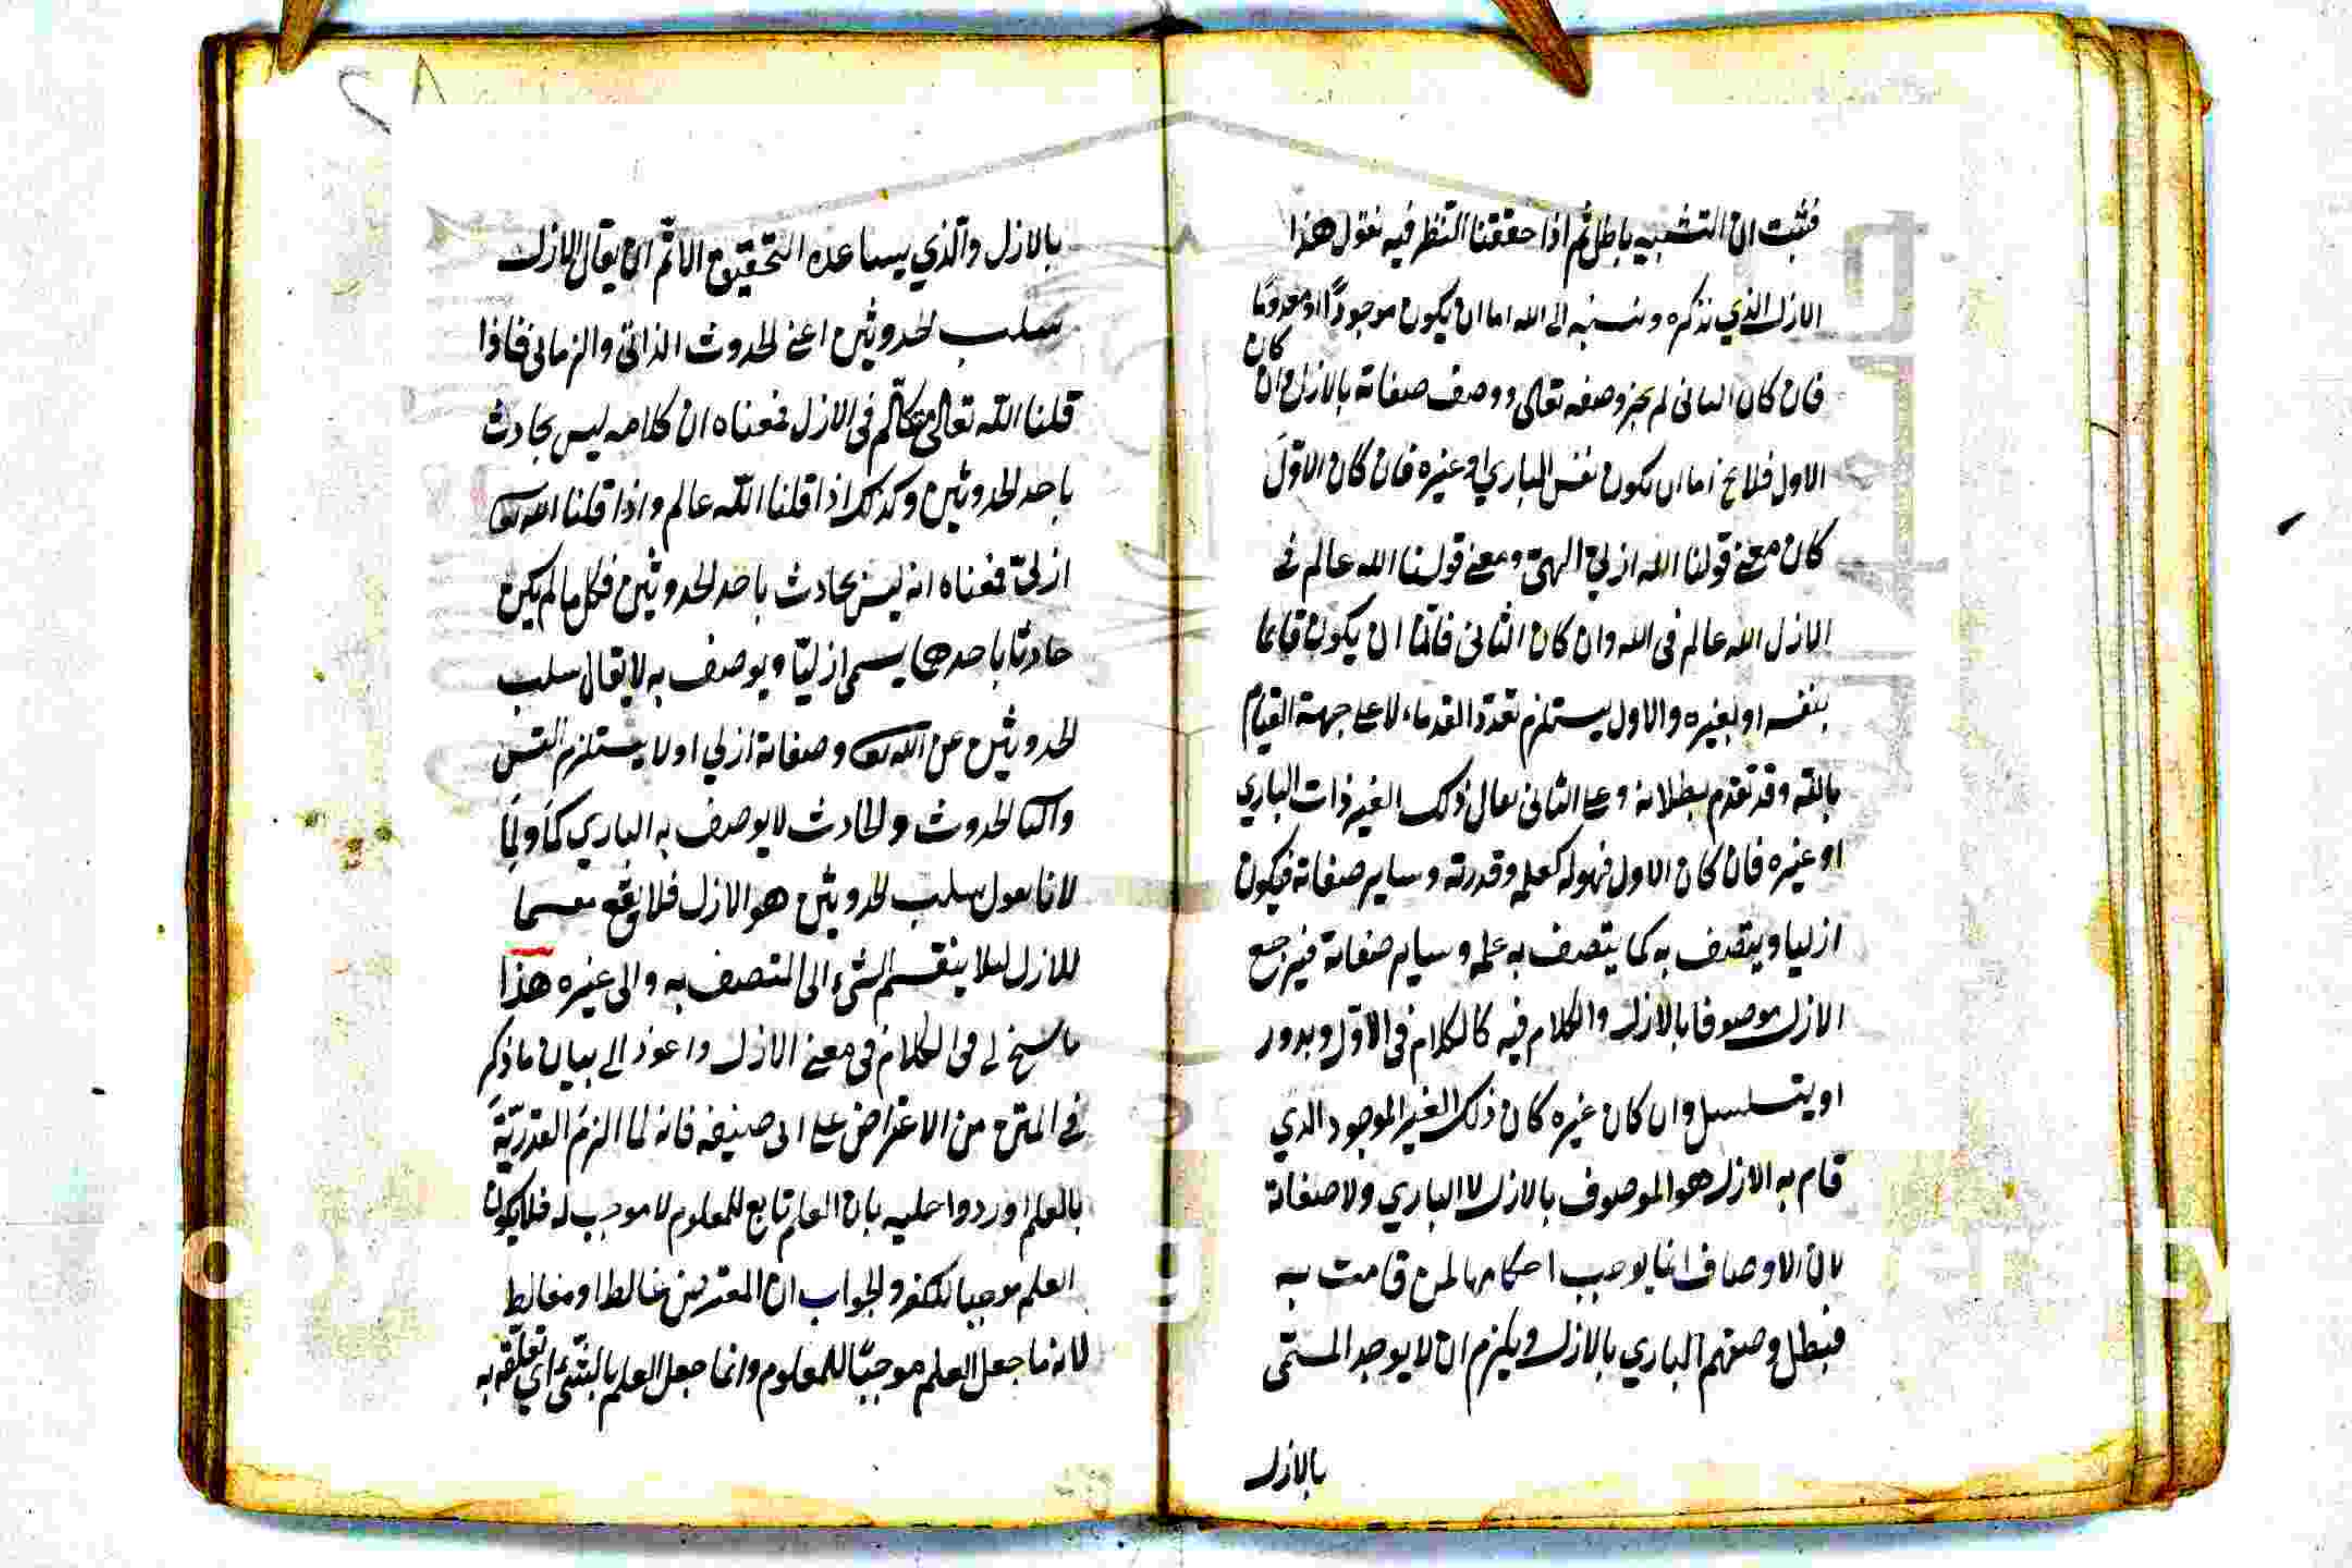 فثبت ان التشبيه باطل ثم اذا حققنا النظر فيه نقول هذا
الازل الذي نذكره وننسبه الى الله اما ان يكون موجودًا او معدومًا
فان كان الثانى لم يجز وصفه تعالى ووصف صفاته بالازل وان كان
الاول فلا يخ اما ان يكون نفس الباري او غيره فان كان الاول
كان معنى قولنا الله ازلي الهيّ ومعنى قولنا الله عالم فى
الازل الله عالم فى الله وان كان الثانى فامّا ان يكون قايما
بنفسه او بغيره والاول يستلزم تعدد القدماء لا على جهة القيام
بالله وقد تقدم بطلانه وعلى الثانى يقال ذلك الغير ذات الباري
او غيره فان كان الاول فهو له كعلمه وقدرته وساير صفاته فيكون
ازليا ويتصف به كما يتصف به علمه وساير صفاته فيرجع
الازل موصوفا بالازل والكلام فيه كالكلام فى الاول ويدور
او يتسلسل وان كان غيره كان ذلك الغير الموجود الذي
قام به الازل هو الموصوف بالازل لا الباري ولا صفاته
لان الاوصاف انما يوجب احكامها لمن قامت به
فبطل وصفهم الباري بالازل ويلزم ان لا يوجد المسمّى
بالازل
بالازل والّذي يساعده التحقيق الاتمّ ان يقال الازل
سلب الحدوثين اعني الحدوث الذاتى والزمانى فاذا
قلنا اللّه تعالى متكلّم فى الازل فمعناه ان كلامه ليس بحادث
باحد الحدوثين وكذلك اذا قلنا اللّه عالم واذا قلنا الله تعه
ازليّ فمعناه انه ليس بحادث باحد الحدوثين فكل ما لم يكن
حادثا باحدهما يسمى ازليّا ويوصف به لا يقال سلب
الحدوثين عن اللّه تعه وصفاته ازلي او لا يستلزم
الحدوث والحادث لا يوصف به الباري
لانا نقول سلب الحدوثين هو الازل فلا يقع
للازل ليلا ينقسم الشىء الى المتصف به والى غيره هذا
ما سنح لي فى الكلام فى معنى الازل واعود الى بيان ما ذكر
في المتن من الاعتراض على ابى حنيفه فانه لما الزم القدريّة
بالعلم اوردوا عليه بان العلم تابع للمعلوم لا موجب له فلا يكون
العلم موجبا للكفر والجواب ان المعترض غالط او مغالط
لانه ما جعل العلم موجبًا للمعلوم وانما جعل العلم بالشىء اي تعلّقه به